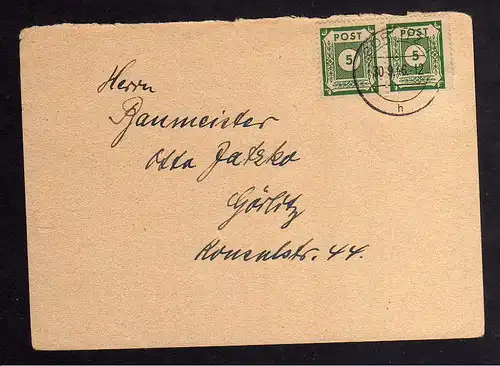 POST POST
5 5
h
Herrn
Baumeister
Otto Jatzko
Görlitz
Konsulstr. 44.